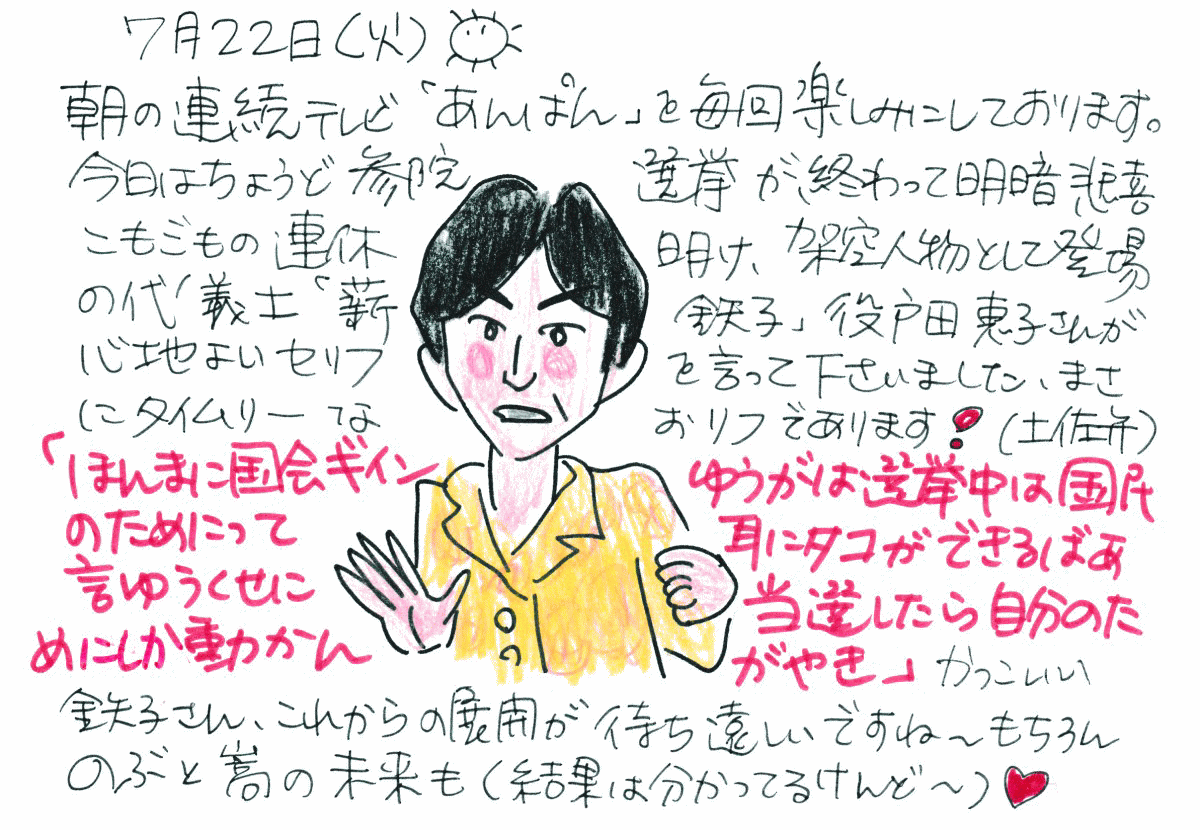 7月22日(火)
朝の連続テレビ「あんぱん」を毎回楽しみにしております。
今日はちょうど参院選挙が終わって明暗悲喜
こもごもの連休明け、架空人物として登場
の代ギ義士「薪鉄子」役戸田恵子さんが
心地よいセリフを言って下さいました、まさ
にタイムリーなおリフであります!(土佐弁)
「ほんまに国会ギインゆうがは選挙中は国民
のためにって耳にタコができるばあ
言ゆうくせに当選したら自分のた
めにしか動かんがやき」かっこいい
鉄子さん、これからの展開が待ち遠しいですね〜もちろん
のぶと嵩の未来も(結果は分かってるけんど〜)